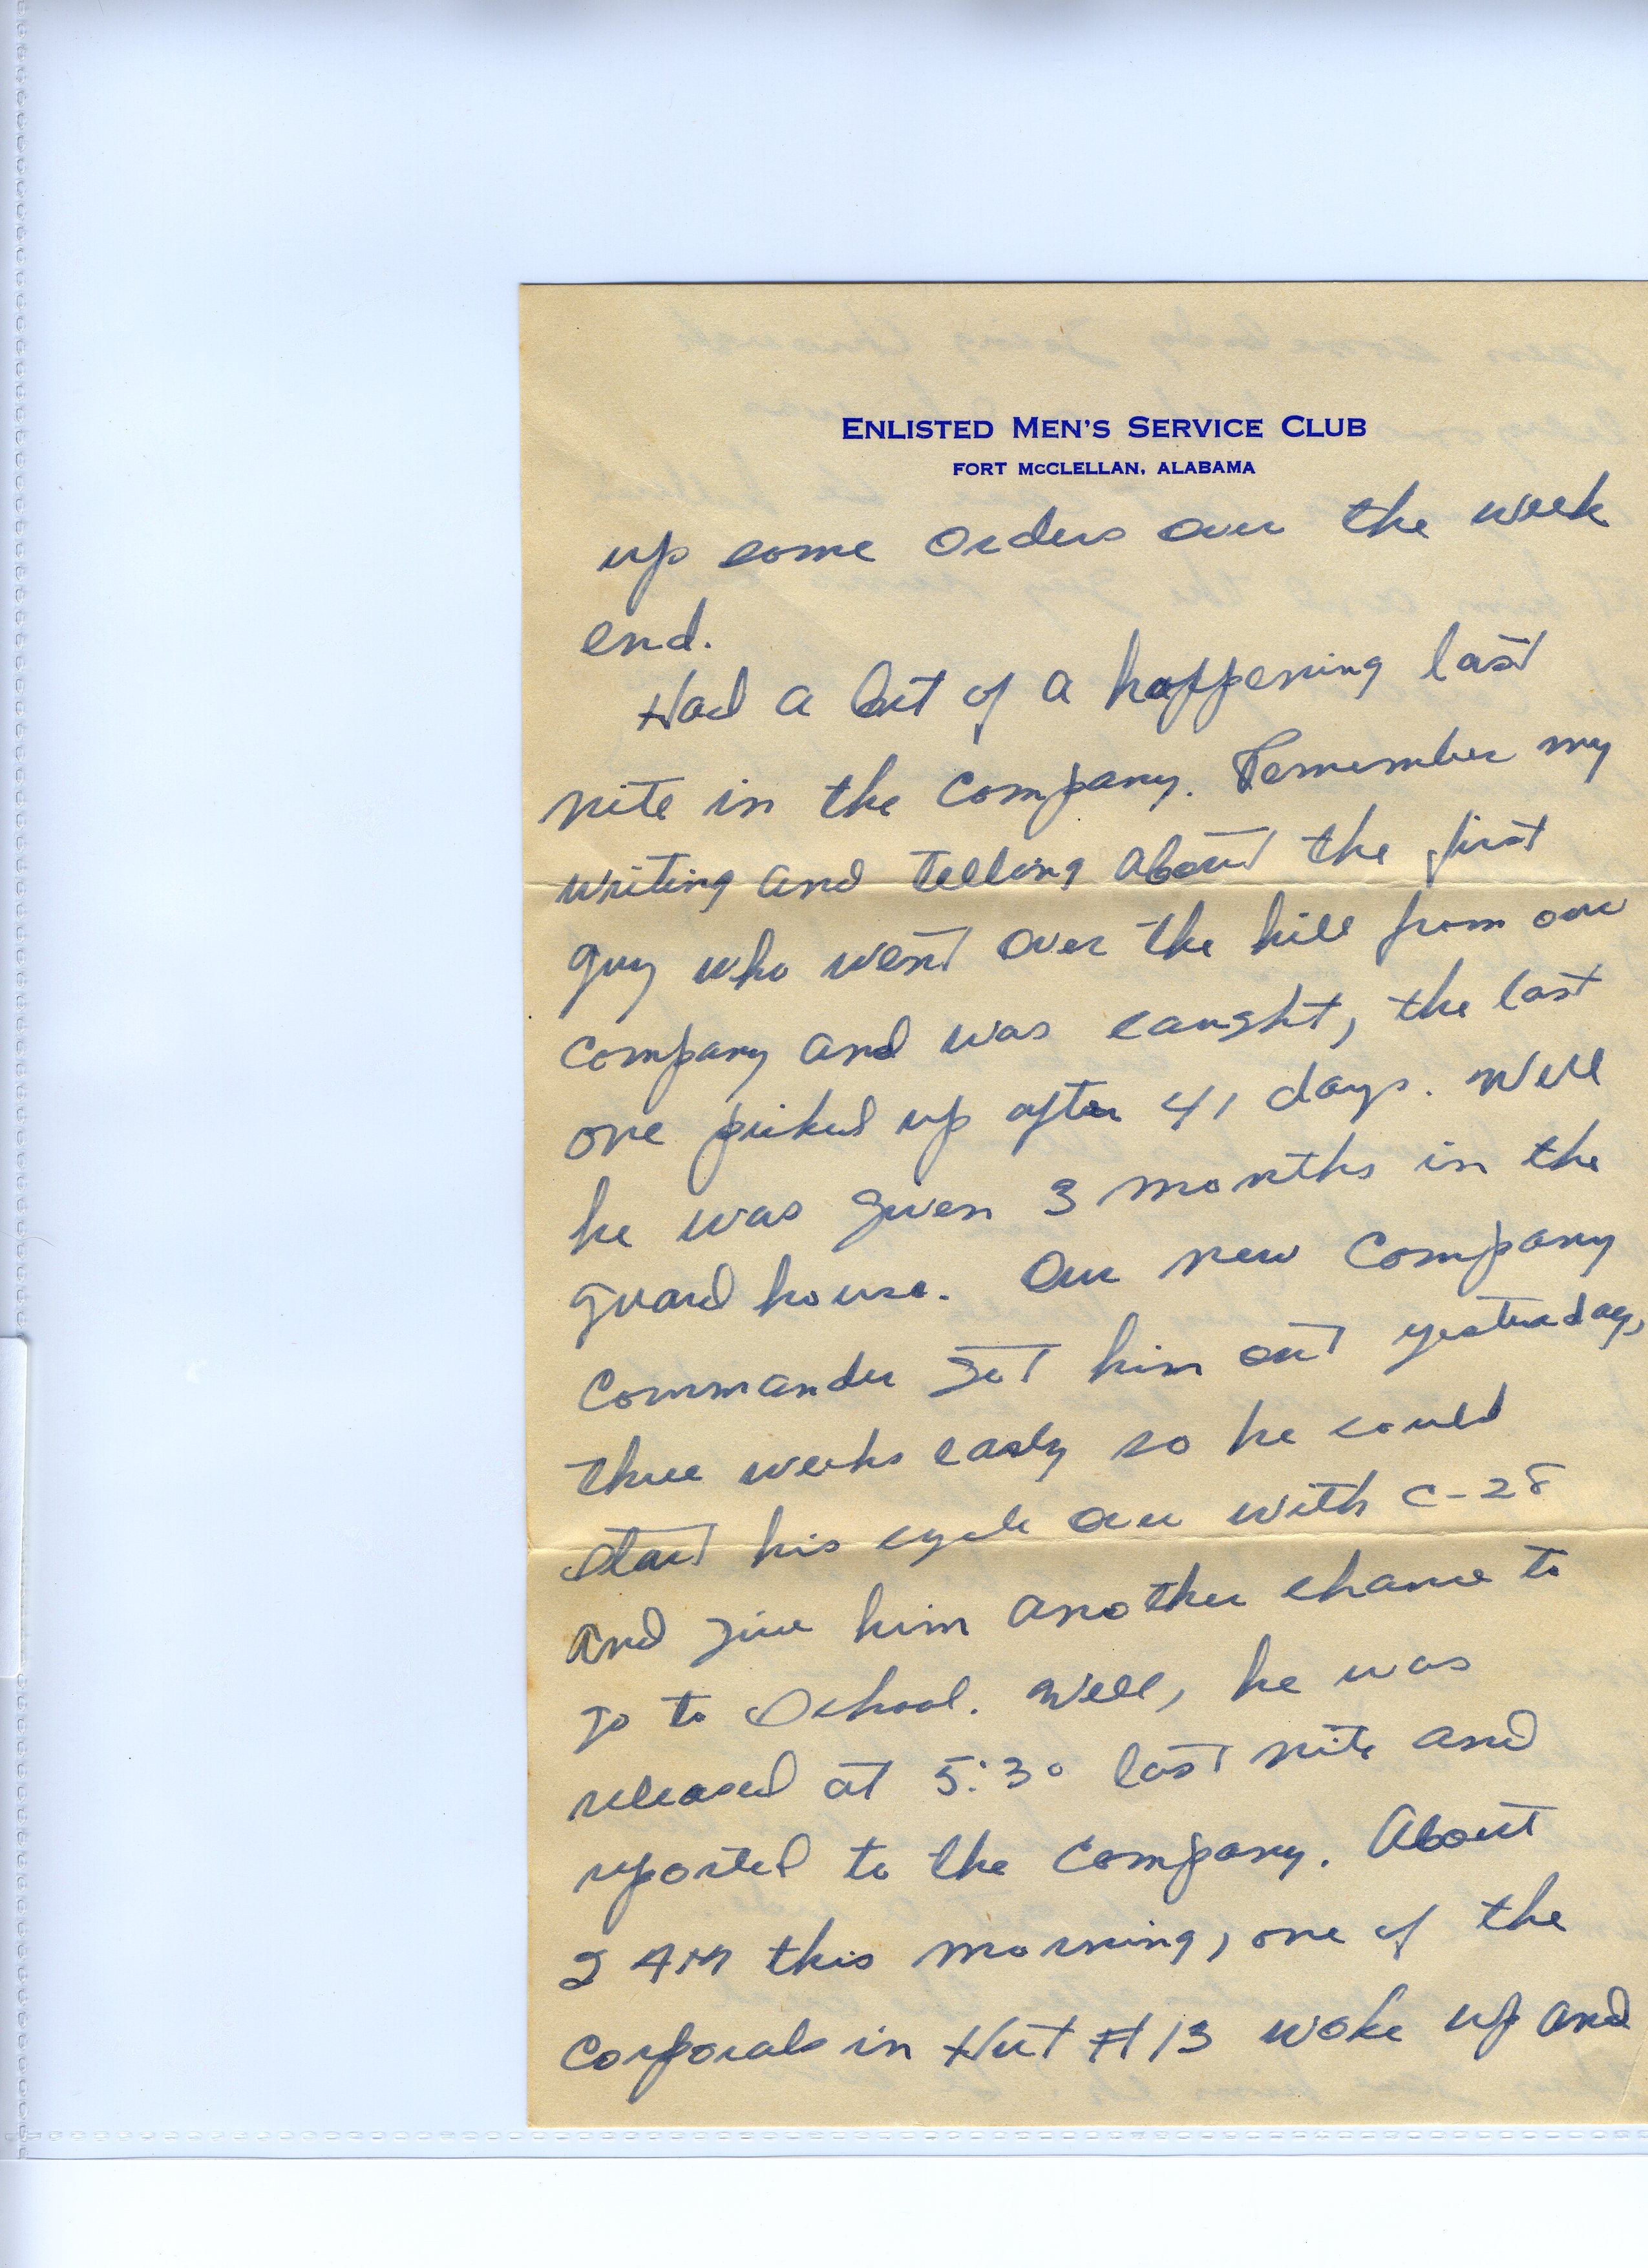 ENLISTED MEN'S SERVICE CLUB
FORT McCLELLAN, ALABAMA
up some orders over the week
end.
Had a bit of a happening last
nite in the company. Remember my
writing and telling about the first
guy who went over the hill from our
company and was caught, the last
one picked up after 41 days. Well
he was given 3 months in the
guard house. Our new company
commander got him out yesterday,
three weeks early so he could
start his cycle over with C-28
and give him another chance to
go to school. Well, he was
released at 5:30 last nite and
reported to the company. About
2 AM this morning, one of the
corporals in Hut #13 woke up and